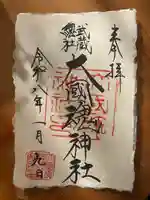 奉拝
武蔵
總社
大國魂神社
令和八年一月九日